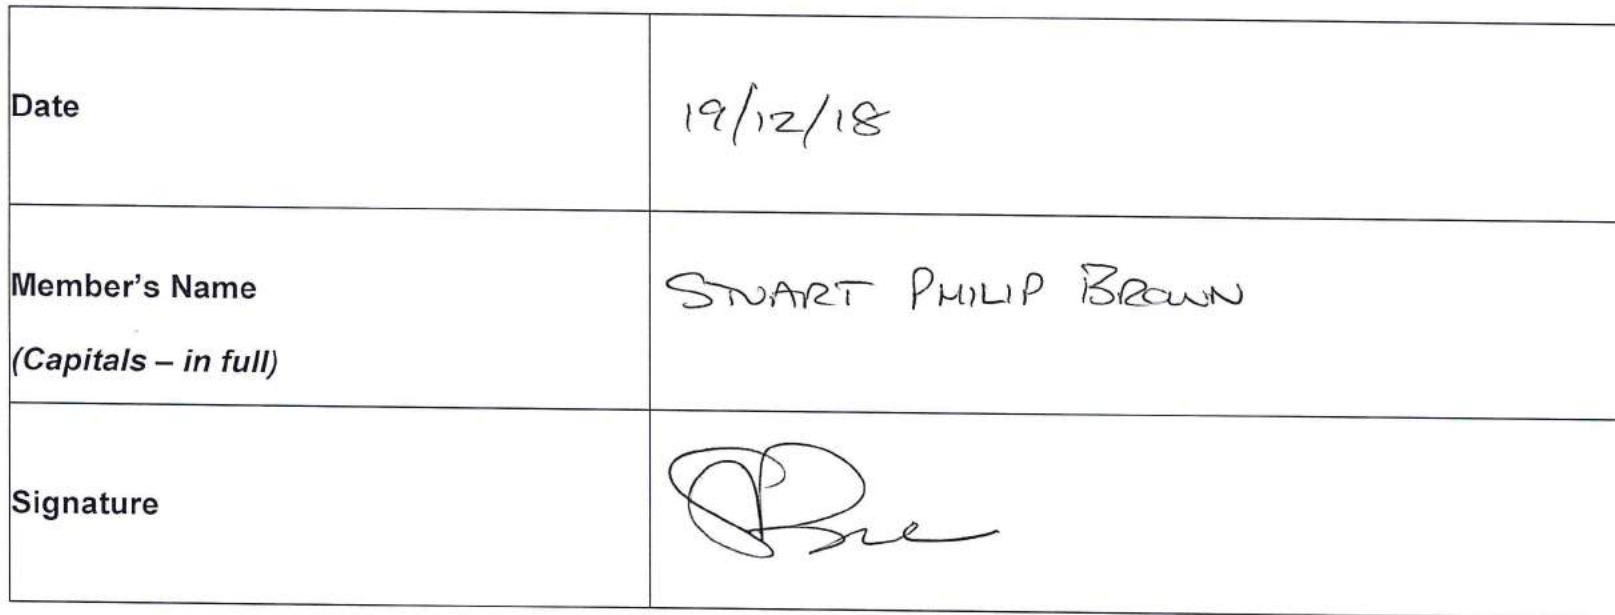 Date
19/12/18
Member's Name
(Capitals – in full)
STUART PHILIP BROWN
Signature